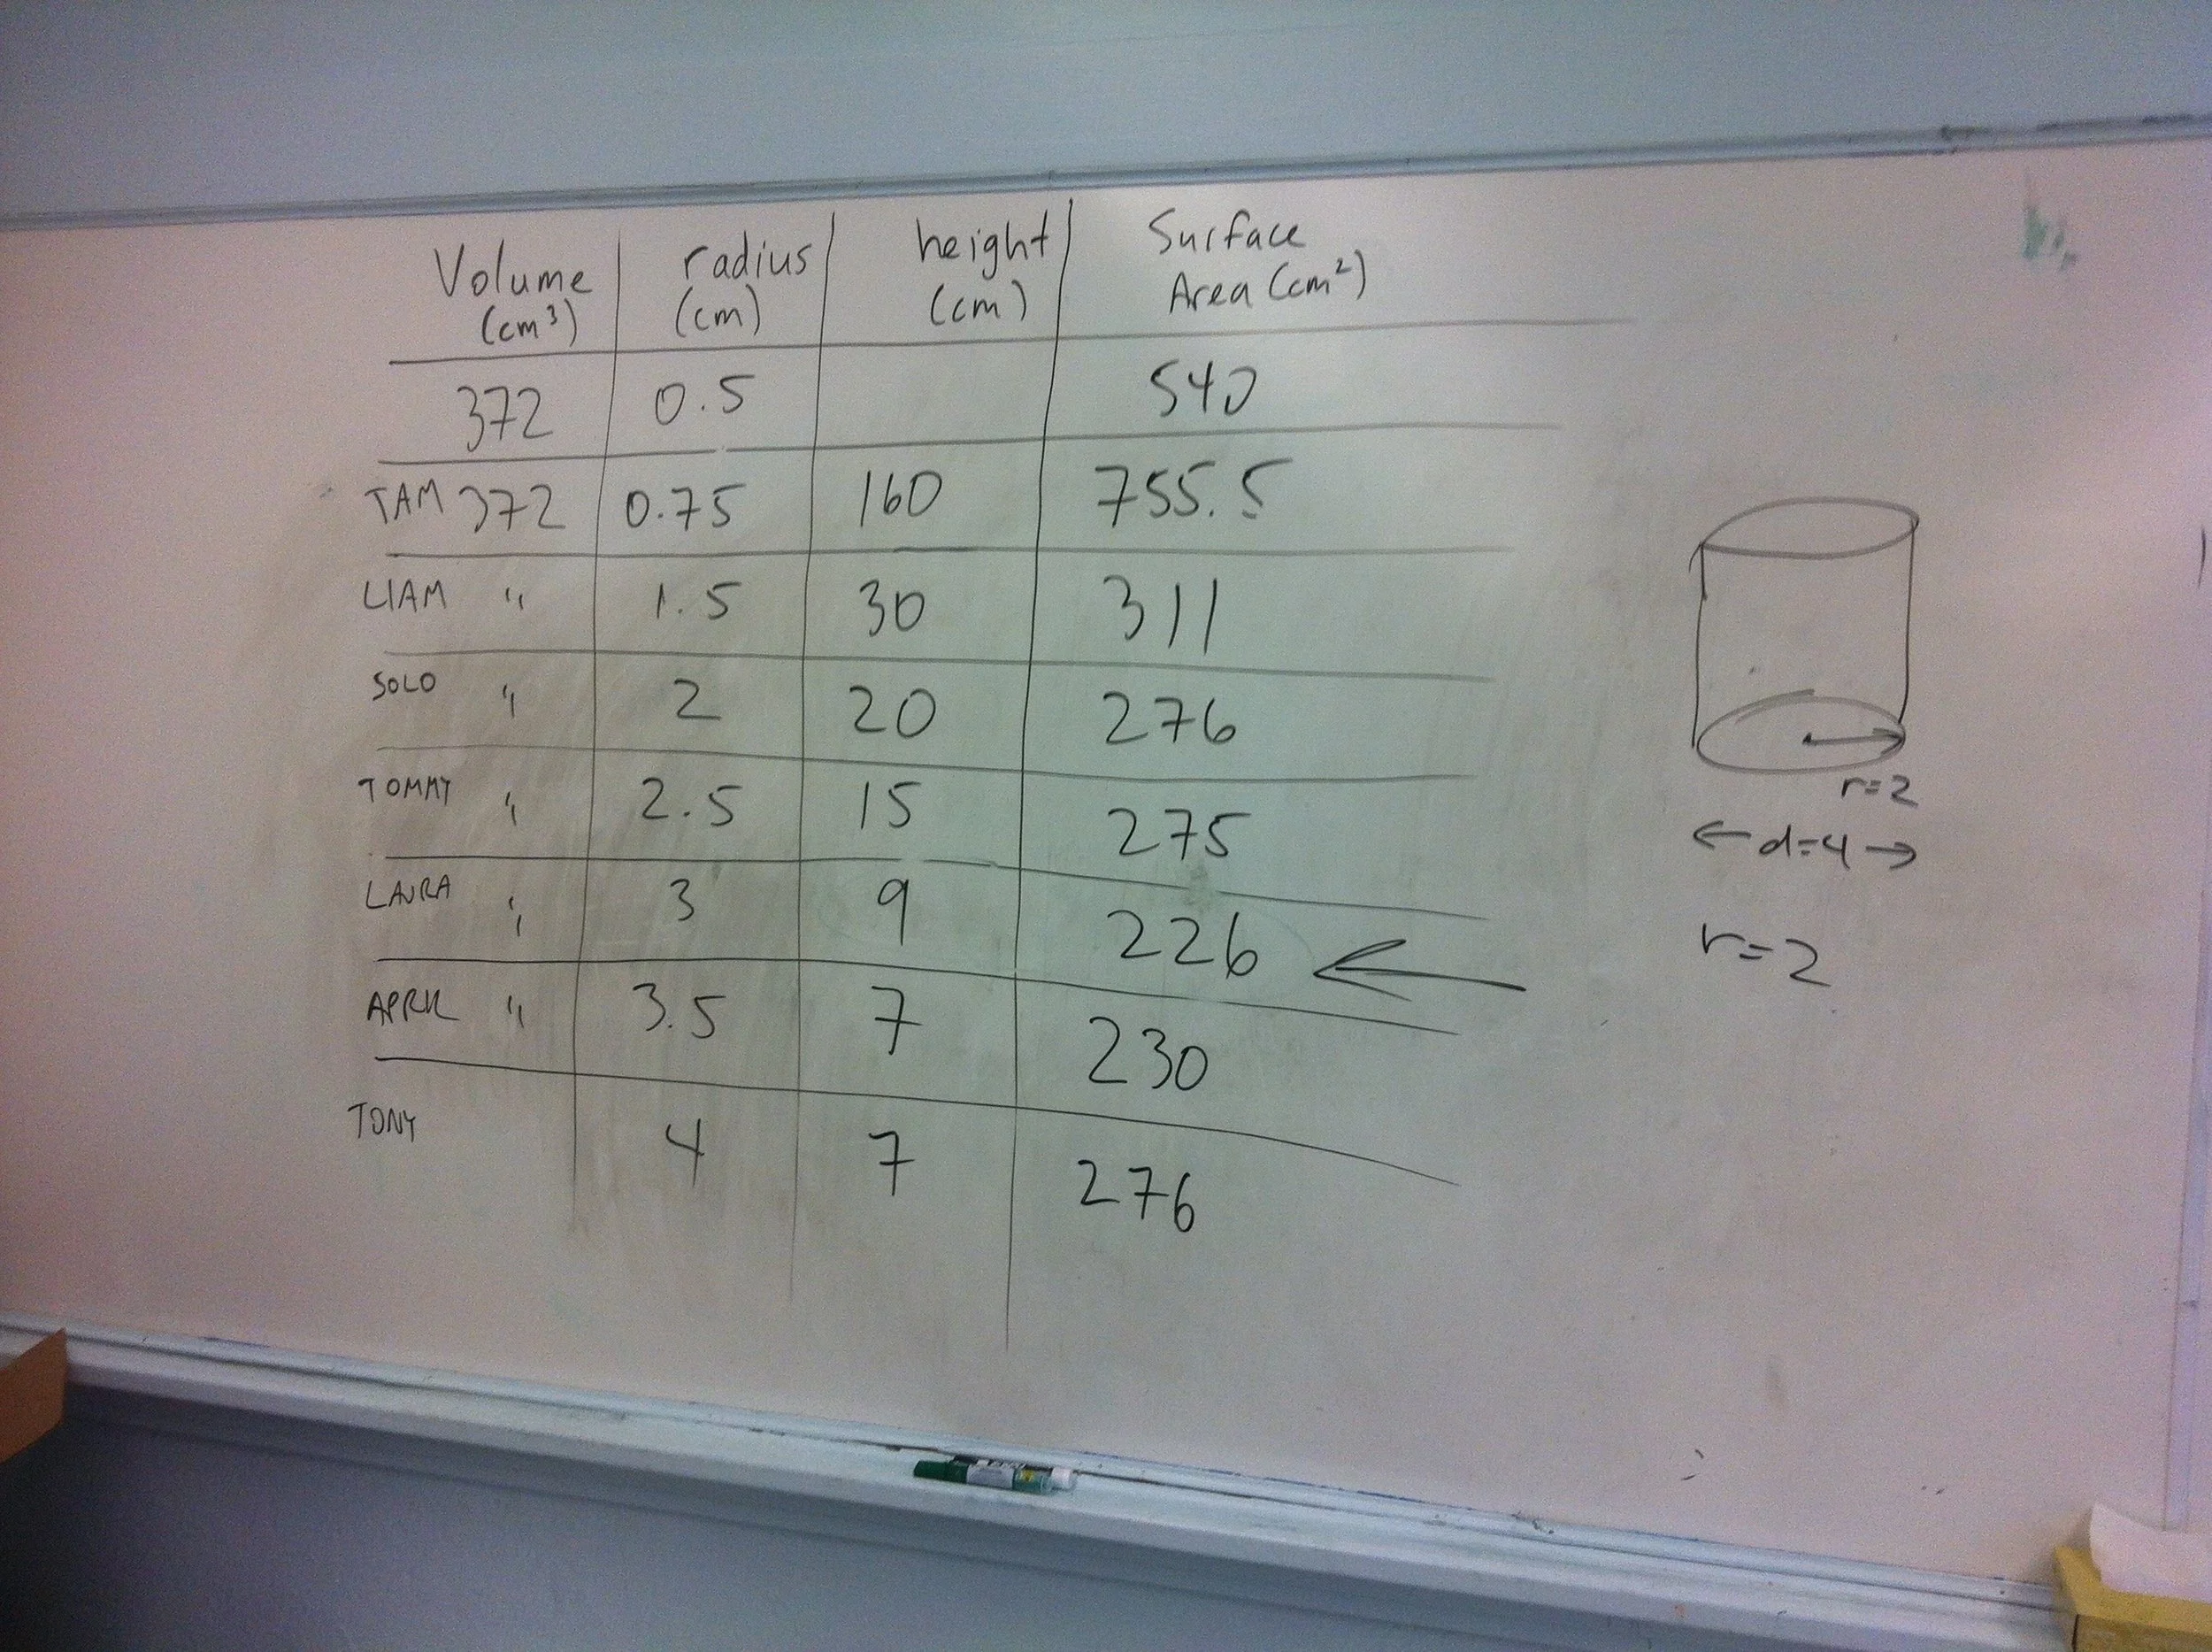 Volume (cm³) radius (cm) height (cm) Surface Area (cm²)
372 0.5 540
TAM 372 0.75 160 755.5
LIAM " 1.5 30 311
SOLO " 2 20 276
TOMMY " 2.5 15 275
LAURA " 3 9 226
APRIL " 3.5 7 230
TONY 4 7 276
r=2
d=4
r=2